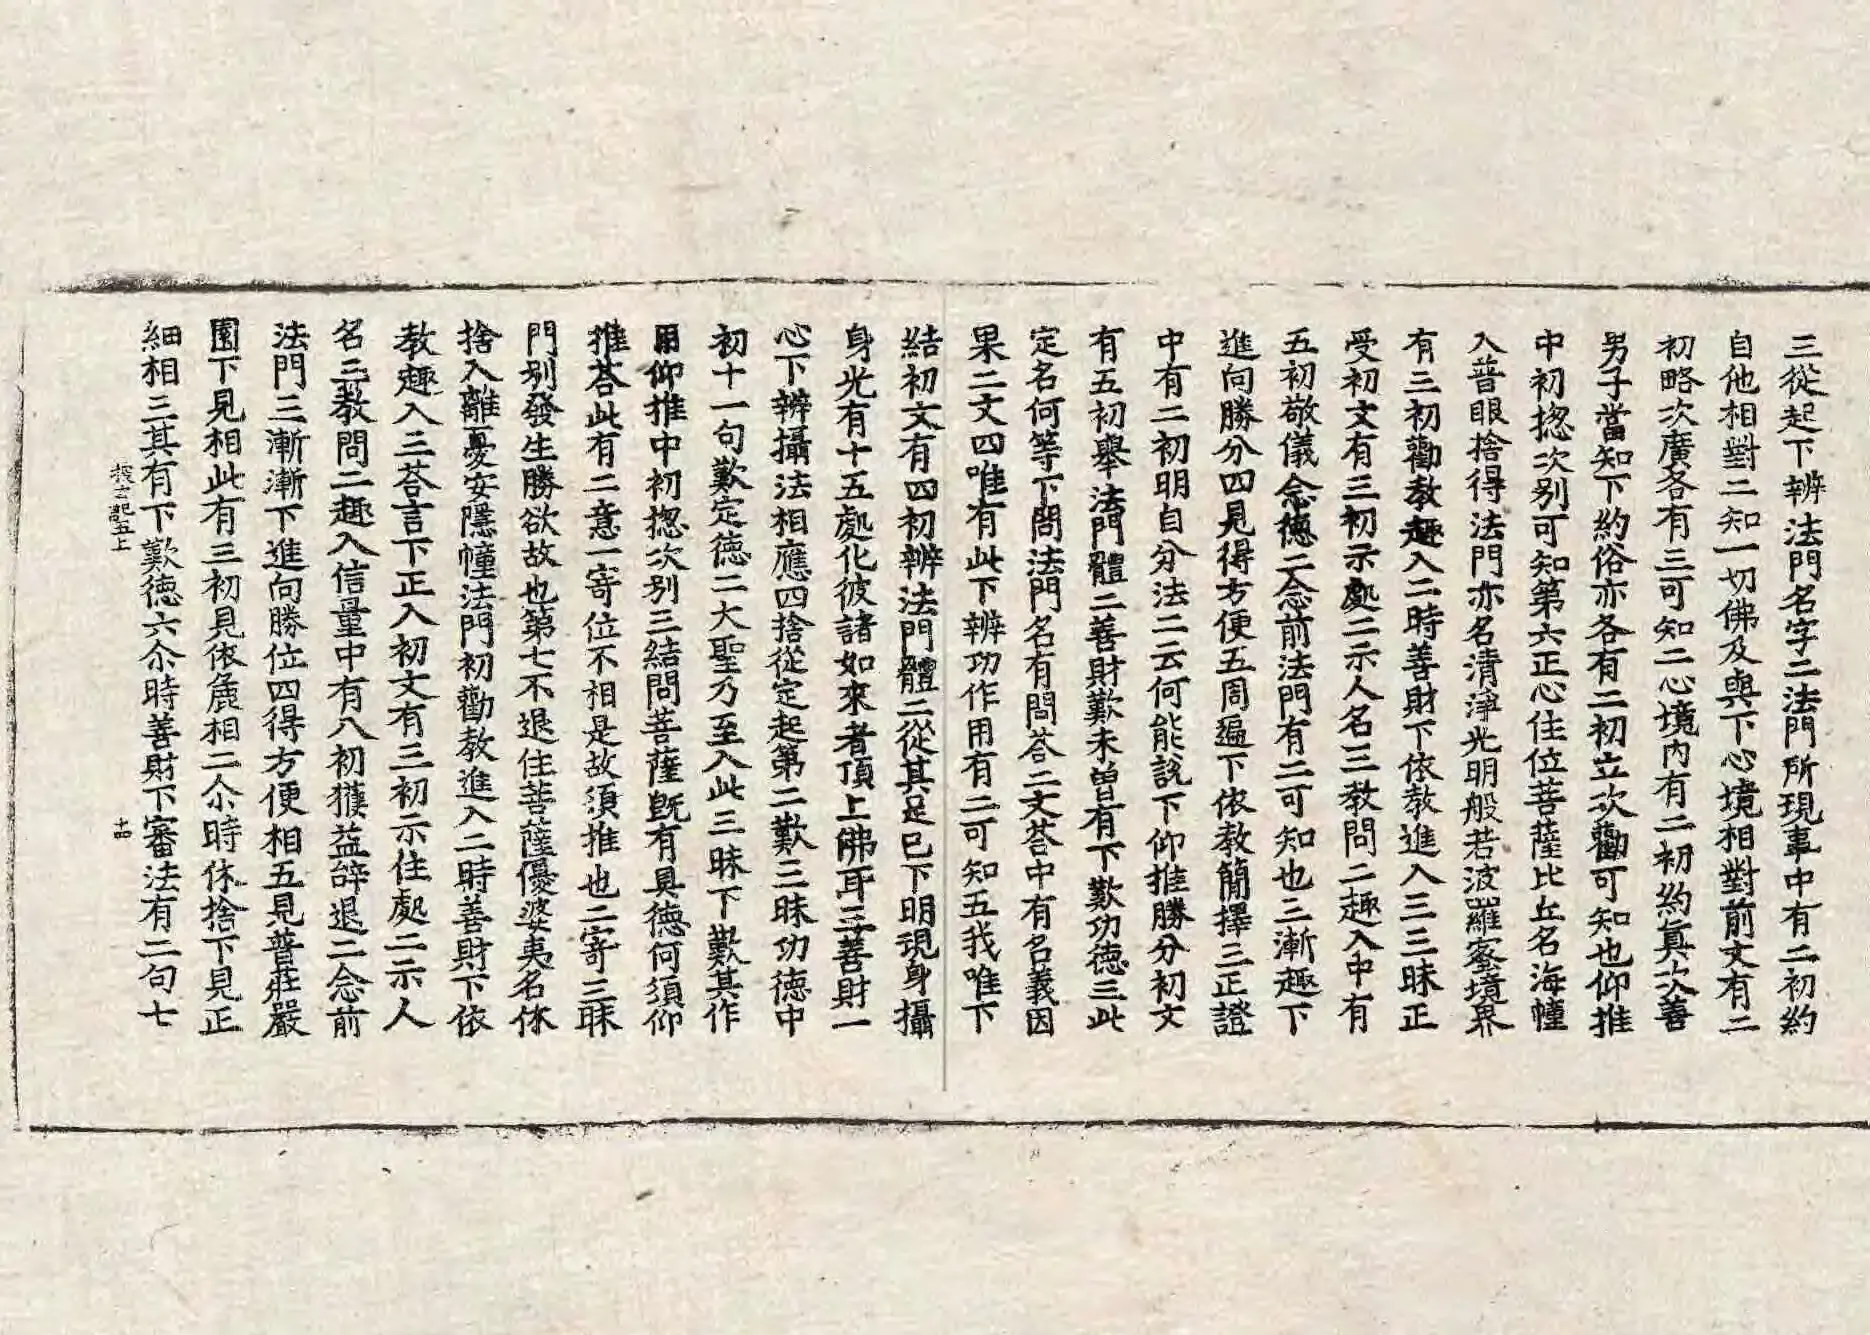 三從起下辨法門名字二法門所現事中有二初約
自他相對二知一切佛及與下心境相對前文有二
初略次廣各有三可知二心境內有二初約真次善
男子當知下約俗亦各有二初立次勸可知也仰推
中初揔次别可知第六正心住位菩薩比丘名海幢
入普眼捨得法門亦名清淨光明般若波羅蜜境界
有三初勸教趣入二時善財下依教進入三三昧正
受初文有三初示處二示人名三教問二趣入中有
五初敬儀念德二念前法門有二可知也三漸趣下
進向勝分四見得方便五周遍下依教簡擇三正證
中有二初明自分法二云何能說下仰推勝分初文
有五初舉法門體二善財歎未曾有下歎功德三此
定名何等下問法門名有問荅二文荅中有名義因
果二文四唯有此下辨功作用有二可知五我唯下
結初文有四初辨法門體二從其足已下明現身攝
身光有十五處化彼諸如來者頂上佛耳三善財一
心下辨攝法相應四捨從定起第二歎三昧功德中
初十一句歎定德二大聖乃至入此三昧下歎其作
用仰推中初揔次别三結問菩薩旣有具德何須仰
推荅此有二意一寄位不相是故須推也二寄三昧
門别發生勝欲故也第七不退住菩薩優婆夷名休
捨入離憂安隱幢法門初勸教進入二時善財下依
教趣入三荅言下正入初文有三初示住處二示人
名三教問二趣入信量中有八初獲益辞退二念前
法門三漸漸下進向勝位四得方便相五見普莊嚴
園下見相此有三初見依麁相二尒時休捨下見正
細相三其有下歎德六尒時善財下審法有二句七
探玄記五上
十四